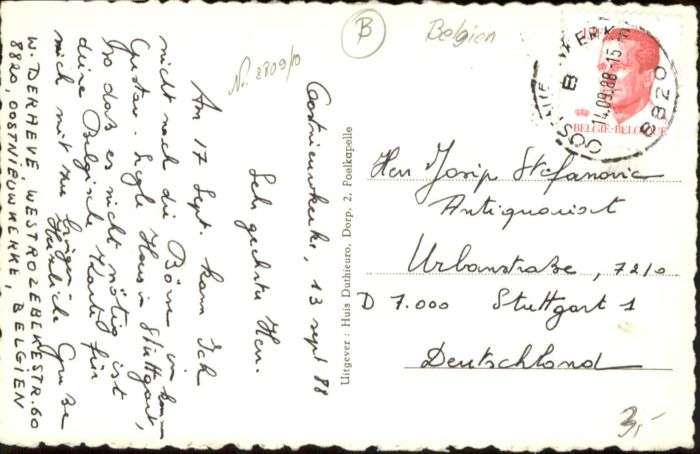 B
Belgien
No. 2809/0
OOSTNIEUWKERKE
B
14.09.88-15
8820
BELGIE-BELGIQUE
Oostnieuwkerke, 13 sept 88
Sehr geehrter Herr.
Am 17 Sept. kann Ich
nicht nach die Börse in
Gustav-Siegle Haus in Stuttgart,
so dass es nicht nötig ist
deine Belgische Karte für
mich mit zu bringen
Herzliche Grüsse
W. DERHEVE WESTROZEBEKESTR. 60
8820, OOSTNIEUWKERKE, BELGIEN
Uitgever: Huis Duthieuro, Dorp, 2, Poelkapelle
Herr Josip Stefanovic
Antiquariat
Urbanstraße, 72/0
D 7.000 Stuttgart 1
Deutschland
3,-